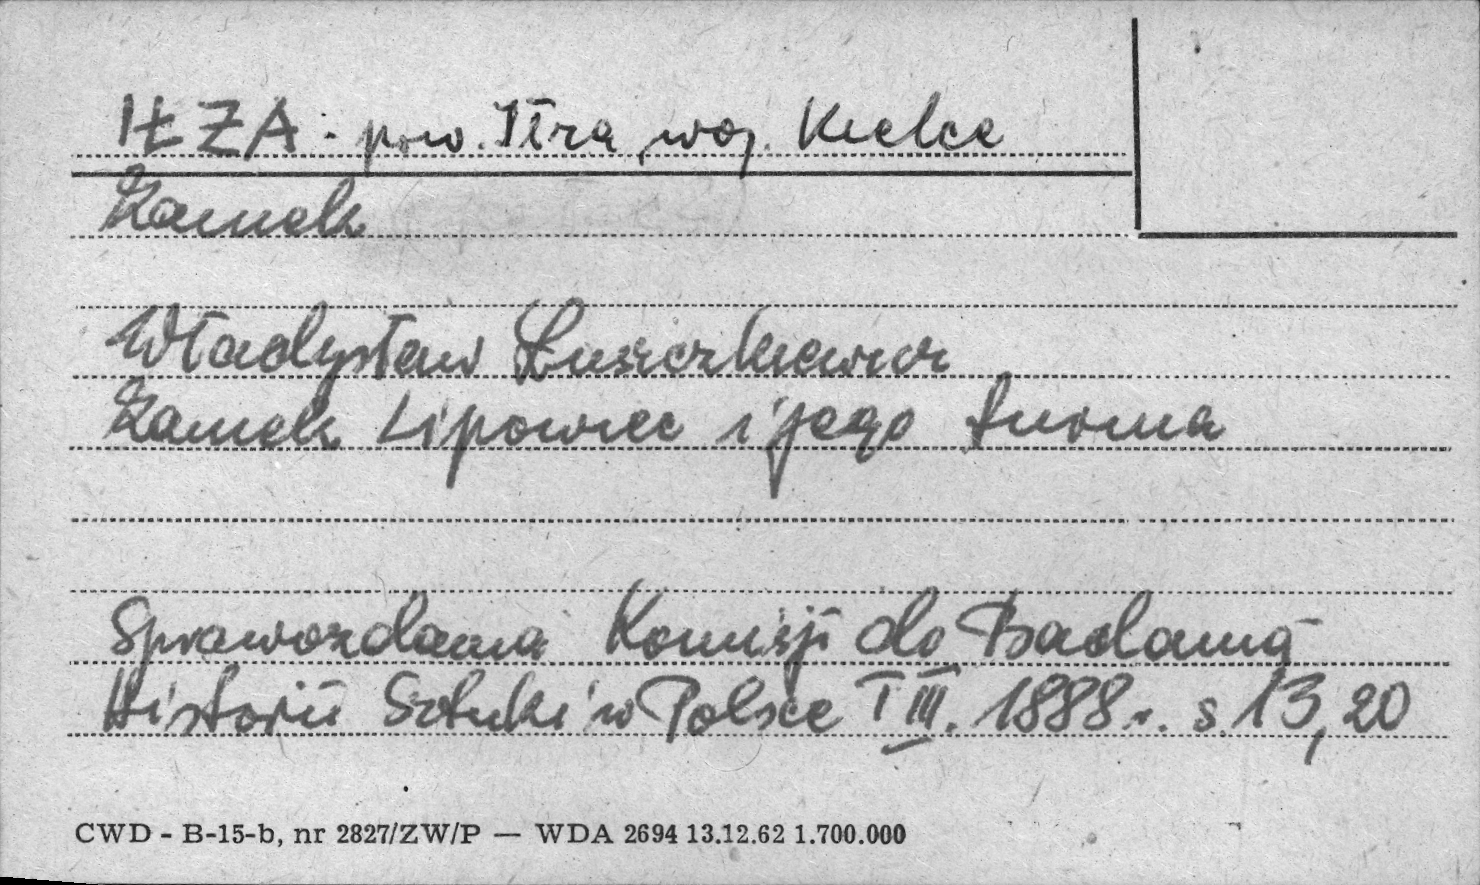 IŁŻA - pow. Iłża, woj. Kielce
Zamek
Władysław Łuszczkiewicz
Zamek Lipowiec i jego
Sprawozdania Komisji do Badania
Historii Sztuki w Polsce T III. 1888 r. s. 13, 20
CWD - B-15-b, nr 2827/ZW/P — WDA 2694 13.12.62 1.700.000